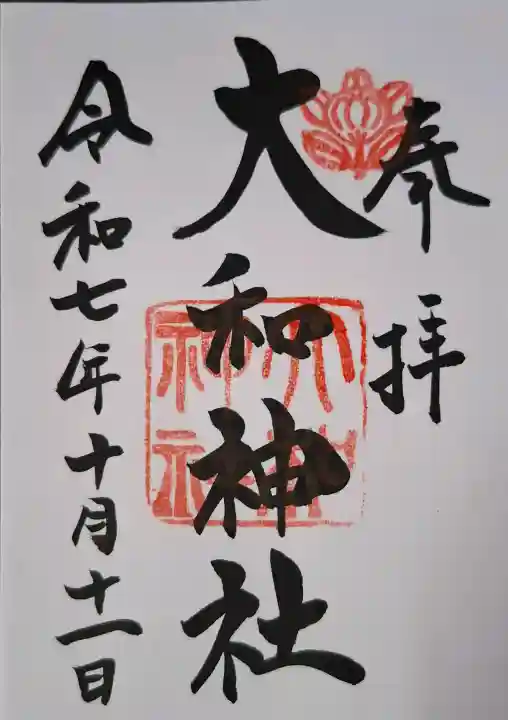 奉拝
大和神社
大和神社
令和七年十月十一日